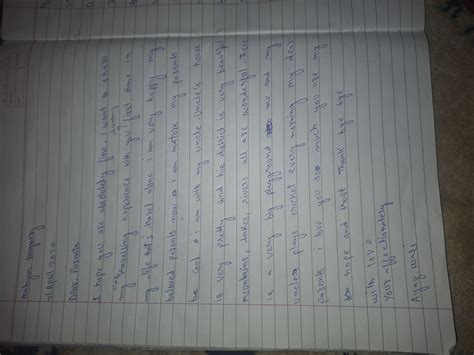 April 2020
Dear Parents
I hope you are absolutely fine. I want to share
my travelling experience with you first time in
my life that i travel alone i am very happy my
beloved parents now i am mature my parents
be cool i am with my uncle. Uncle's house
is very pretty and his district is very beautiful
mountains, lakes, rivers all are wonderful. There
is a very big playground me and my
uncle plays cricket every morning my dear
parents i love you soo much you are my
hope and trust Thank bye bye
with love
your affectionately
Ayaz